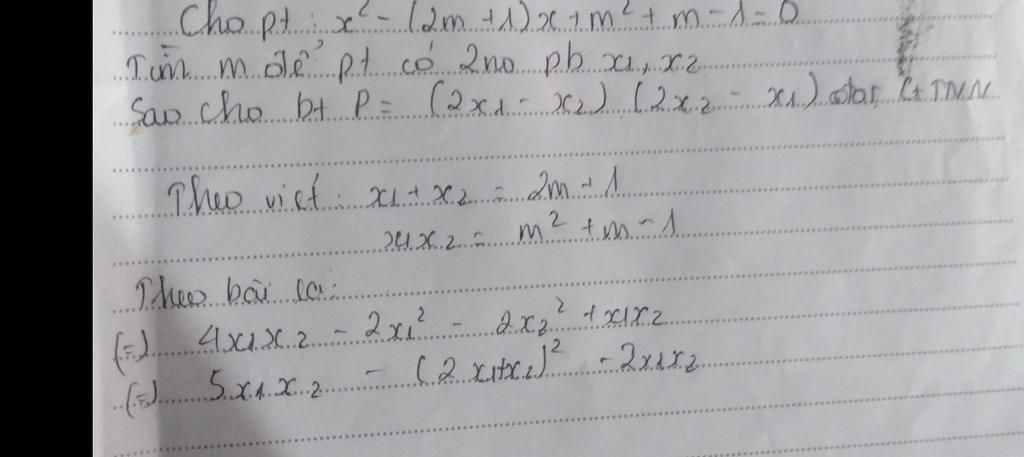 Cho pt : x² - (2m + 1)x + m² + m - 1 = 0
Tìm m để pt có 2no pb x1, x2
Sao cho bt P = (2x1 - x2) (2x2 - x1) đạt GTNN
Theo viet : x1 + x2 = 2m + 1
x1x2 = m² + m - 1
Theo bài ra:
(=) 4x1x2 - 2x1² - 2x2² + x1x2
(=) 5x1x2 - (2x1+x2)² - 2x1x2